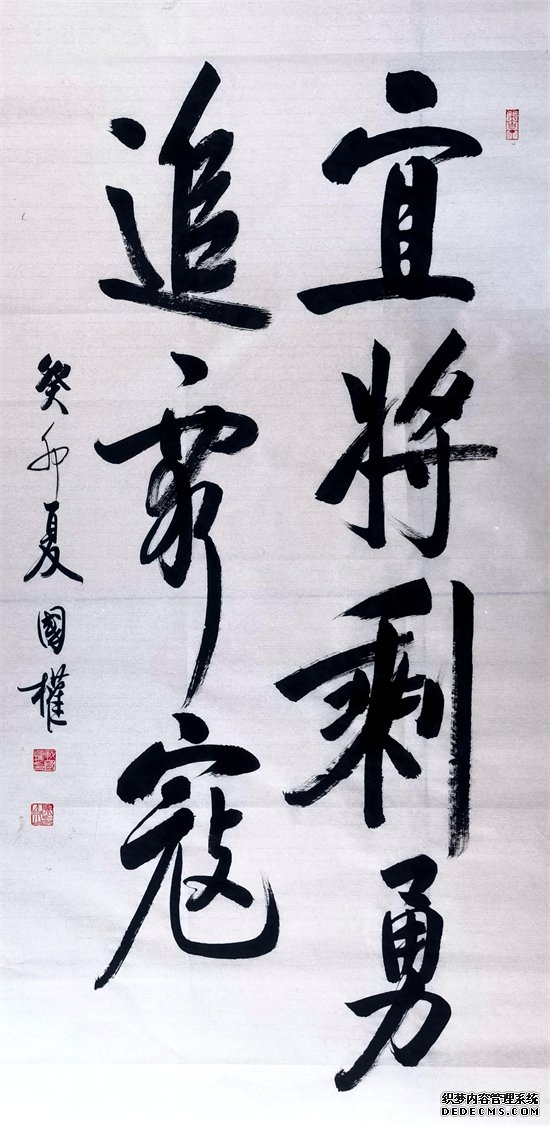 宜将剩勇
追穷寇
癸卯夏國權
织梦内容管理系统
DEDECMS.COM